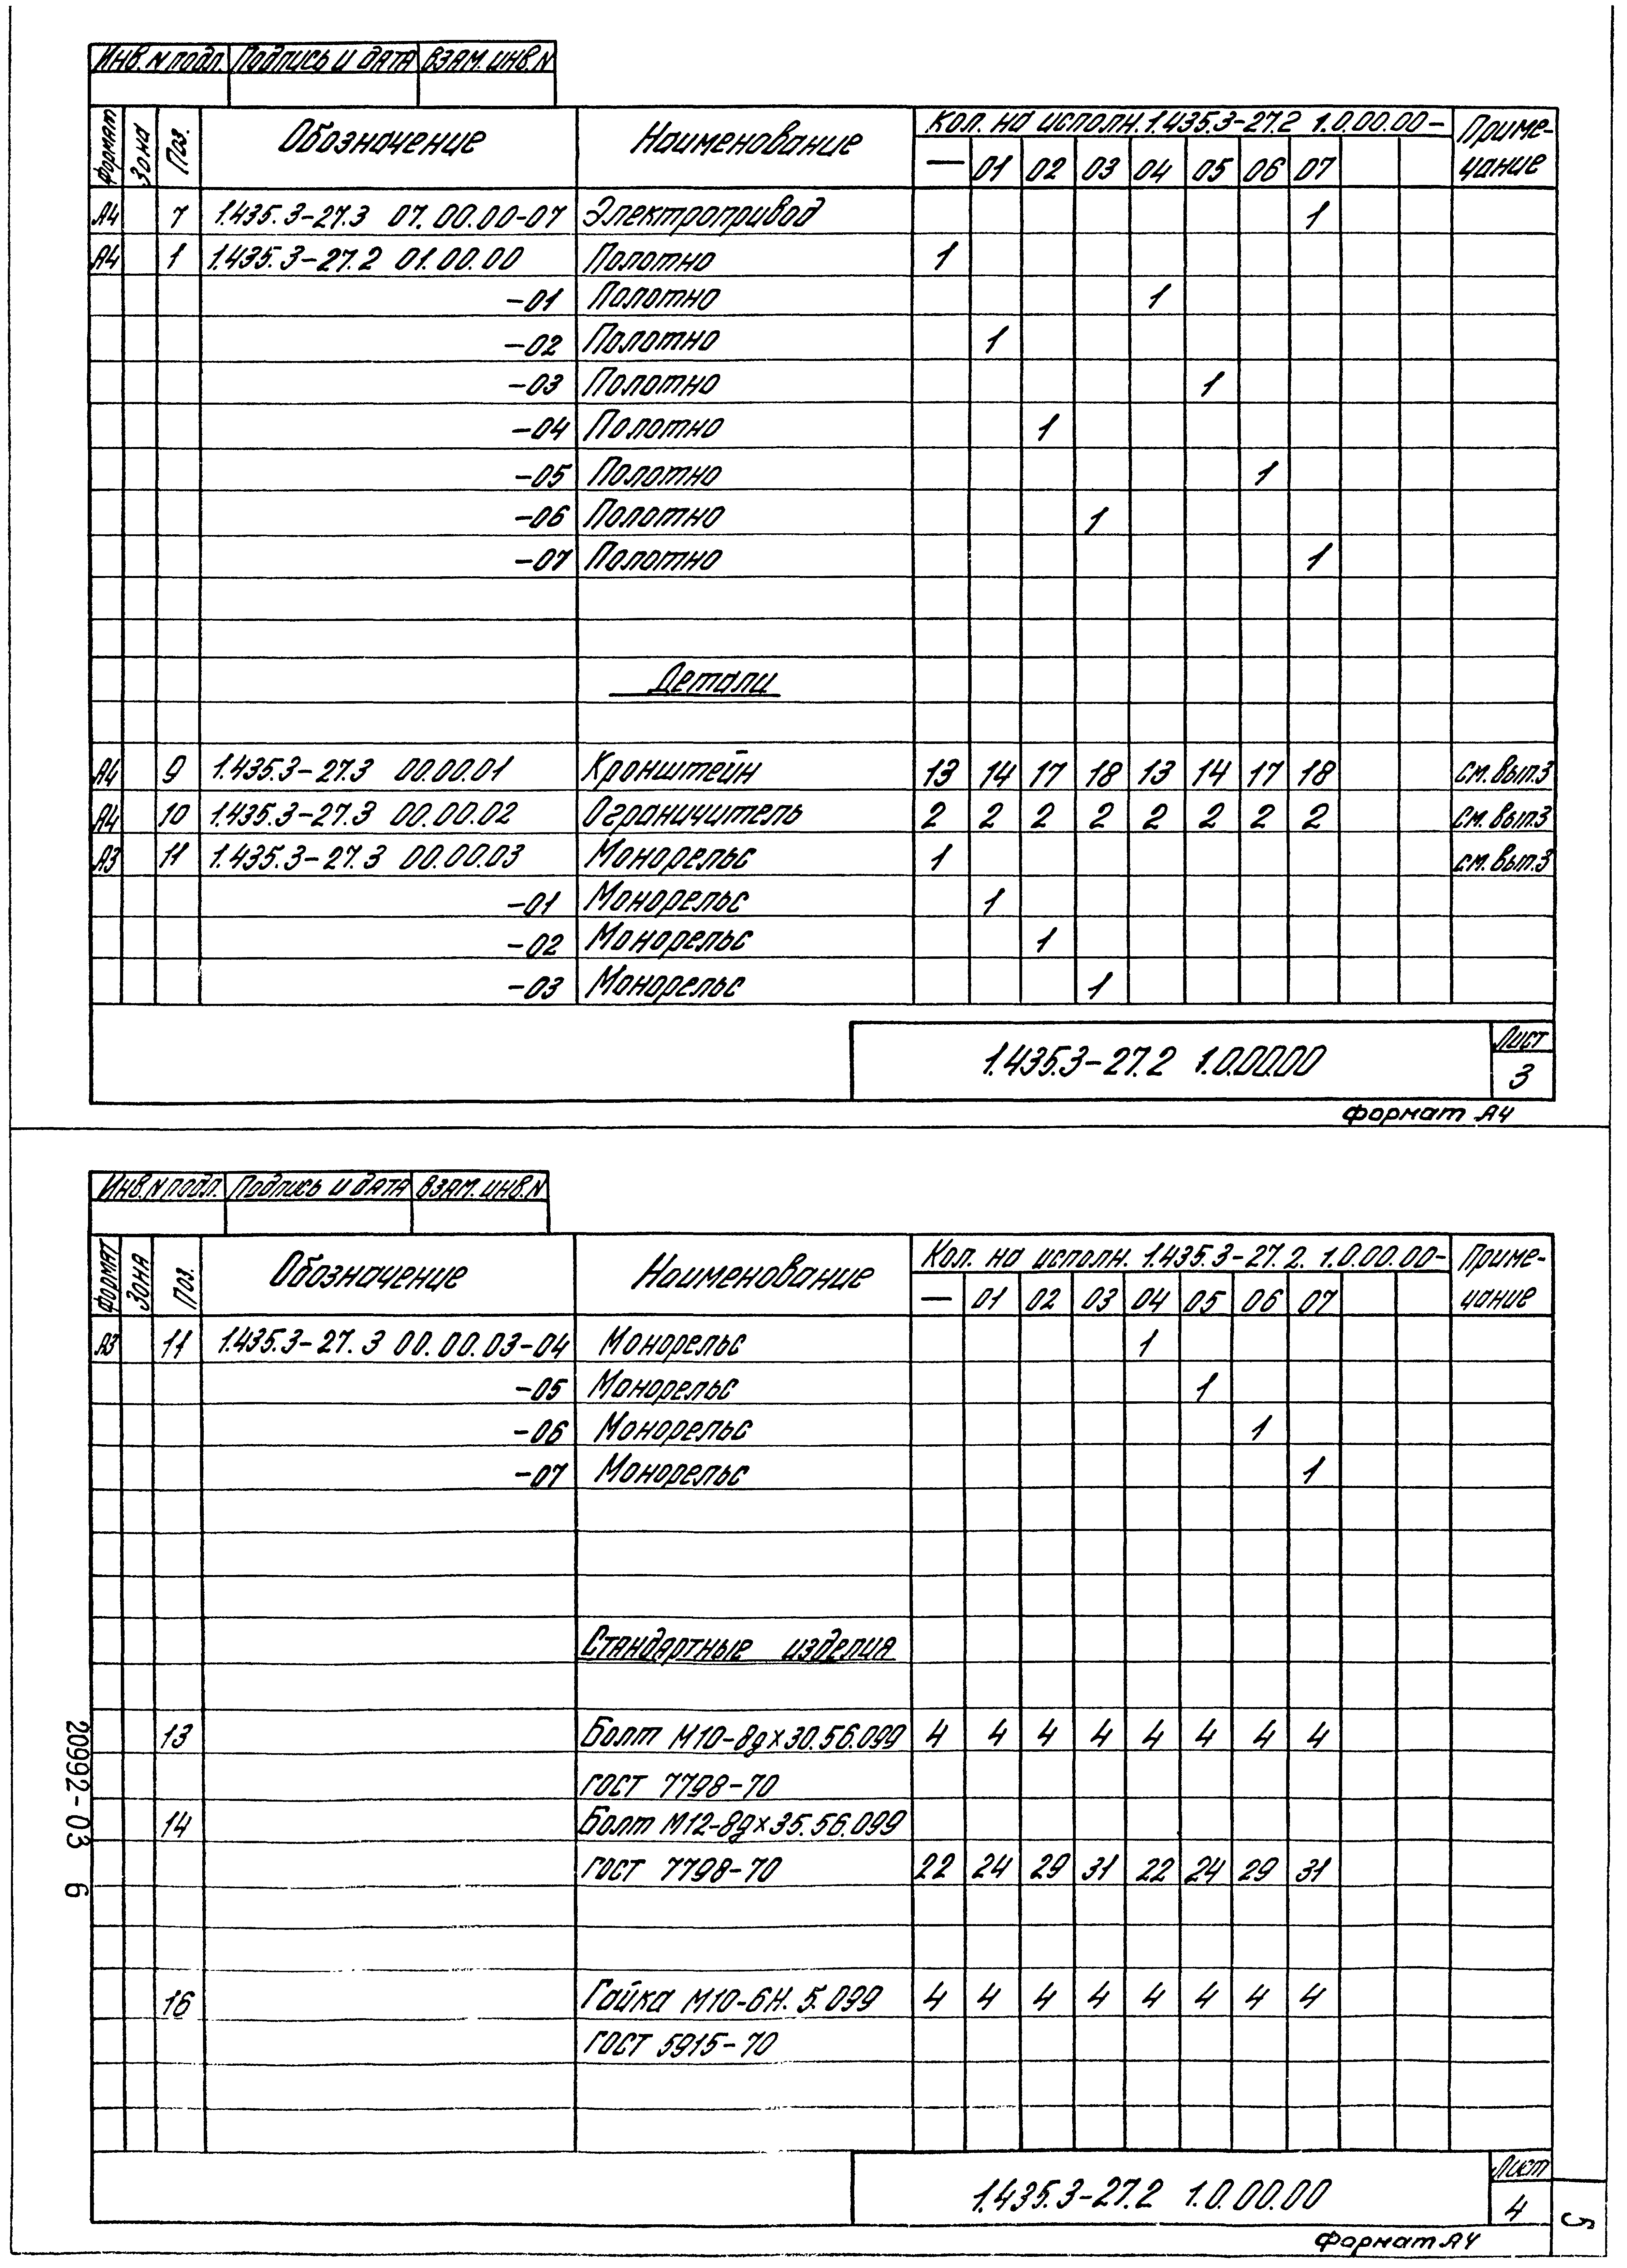 Инв. N подл. Подпись и дата Взам. инв. N
Формат Зона Поз. Обозначение Наименование Кол. на исполн. 1.435.3-27.2 1.0.00.00- Приме-
— 01 02 03 04 05 06 07 чание
А4 7 1.435.3-27.3 07.00.00-07 Электропривод 1
А4 1 1.435.3-27.2 01.00.00 Полотно 1
-01 Полотно 1
-02 Полотно 1
-03 Полотно 1
-04 Полотно 1
-05 Полотно 1
-06 Полотно 1
-07 Полотно 1
Детали
А4 9 1.435.3-27.3 00.00.01 Кронштейн 13 14 17 18 13 14 17 18 см. вып.3
А4 10 1.435.3-27.3 00.00.02 Ограничитель 2 2 2 2 2 2 2 2 см. вып.3
А3 11 1.435.3-27.3 00.00.03 Монорельс 1 см. вып.3
-01 Монорельс 1
-02 Монорельс 1
-03 Монорельс 1
1.435.3-27.2 1.0.00.00 Лист
3
Формат А4
Инв. N подл. Подпись и дата Взам. инв. N
Формат Зона Поз. Обозначение Наименование Кол. на исполн. 1.435.3-27.2. 1.0.00.00- Приме-
— 01 02 03 04 05 06 07 чание
А3 11 1.435.3-27.3 00.00.03-04 Монорельс 1
-05 Монорельс 1
-06 Монорельс 1
-07 Монорельс 1
Стандартные изделия
13 Болт М10-8gх30.56.099 4 4 4 4 4 4 4 4
ГОСТ 7798-70
14 Болт М12-8gх35.56.099
ГОСТ 7798-70 22 24 29 31 22 24 29 31
16 Гайка М10-6Н.5.099 4 4 4 4 4 4 4 4
ГОСТ 5915-70
1.435.3-27.2 1.0.00.00 Лист
4
Формат А4
20992-03 6
5